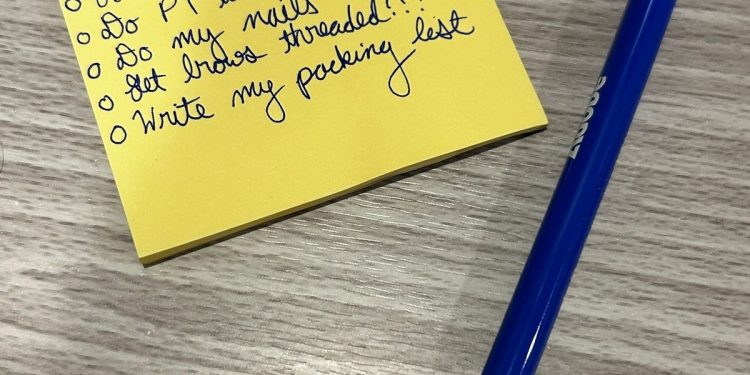 ○ Do PT
○ Do my nails
○ Get brows threaded???
○ Write my packing list